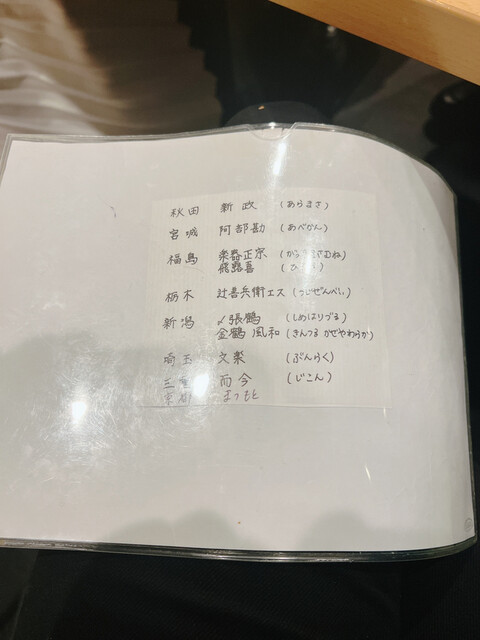 秋田 新政 (あらまさ)
宮城 阿部勘 (あべかん)
福島 楽器正宗 (がっきまさむね)
飛露喜
栃木 辻善兵衛エス (つじぜんべい)
新潟 〆張鶴 (しめはりづる)
金鶴 風和 (きんつる かぜやわらか)
埼玉 文楽 (ぶんらく)
三重 而今 (じこん)
京都 まつもと